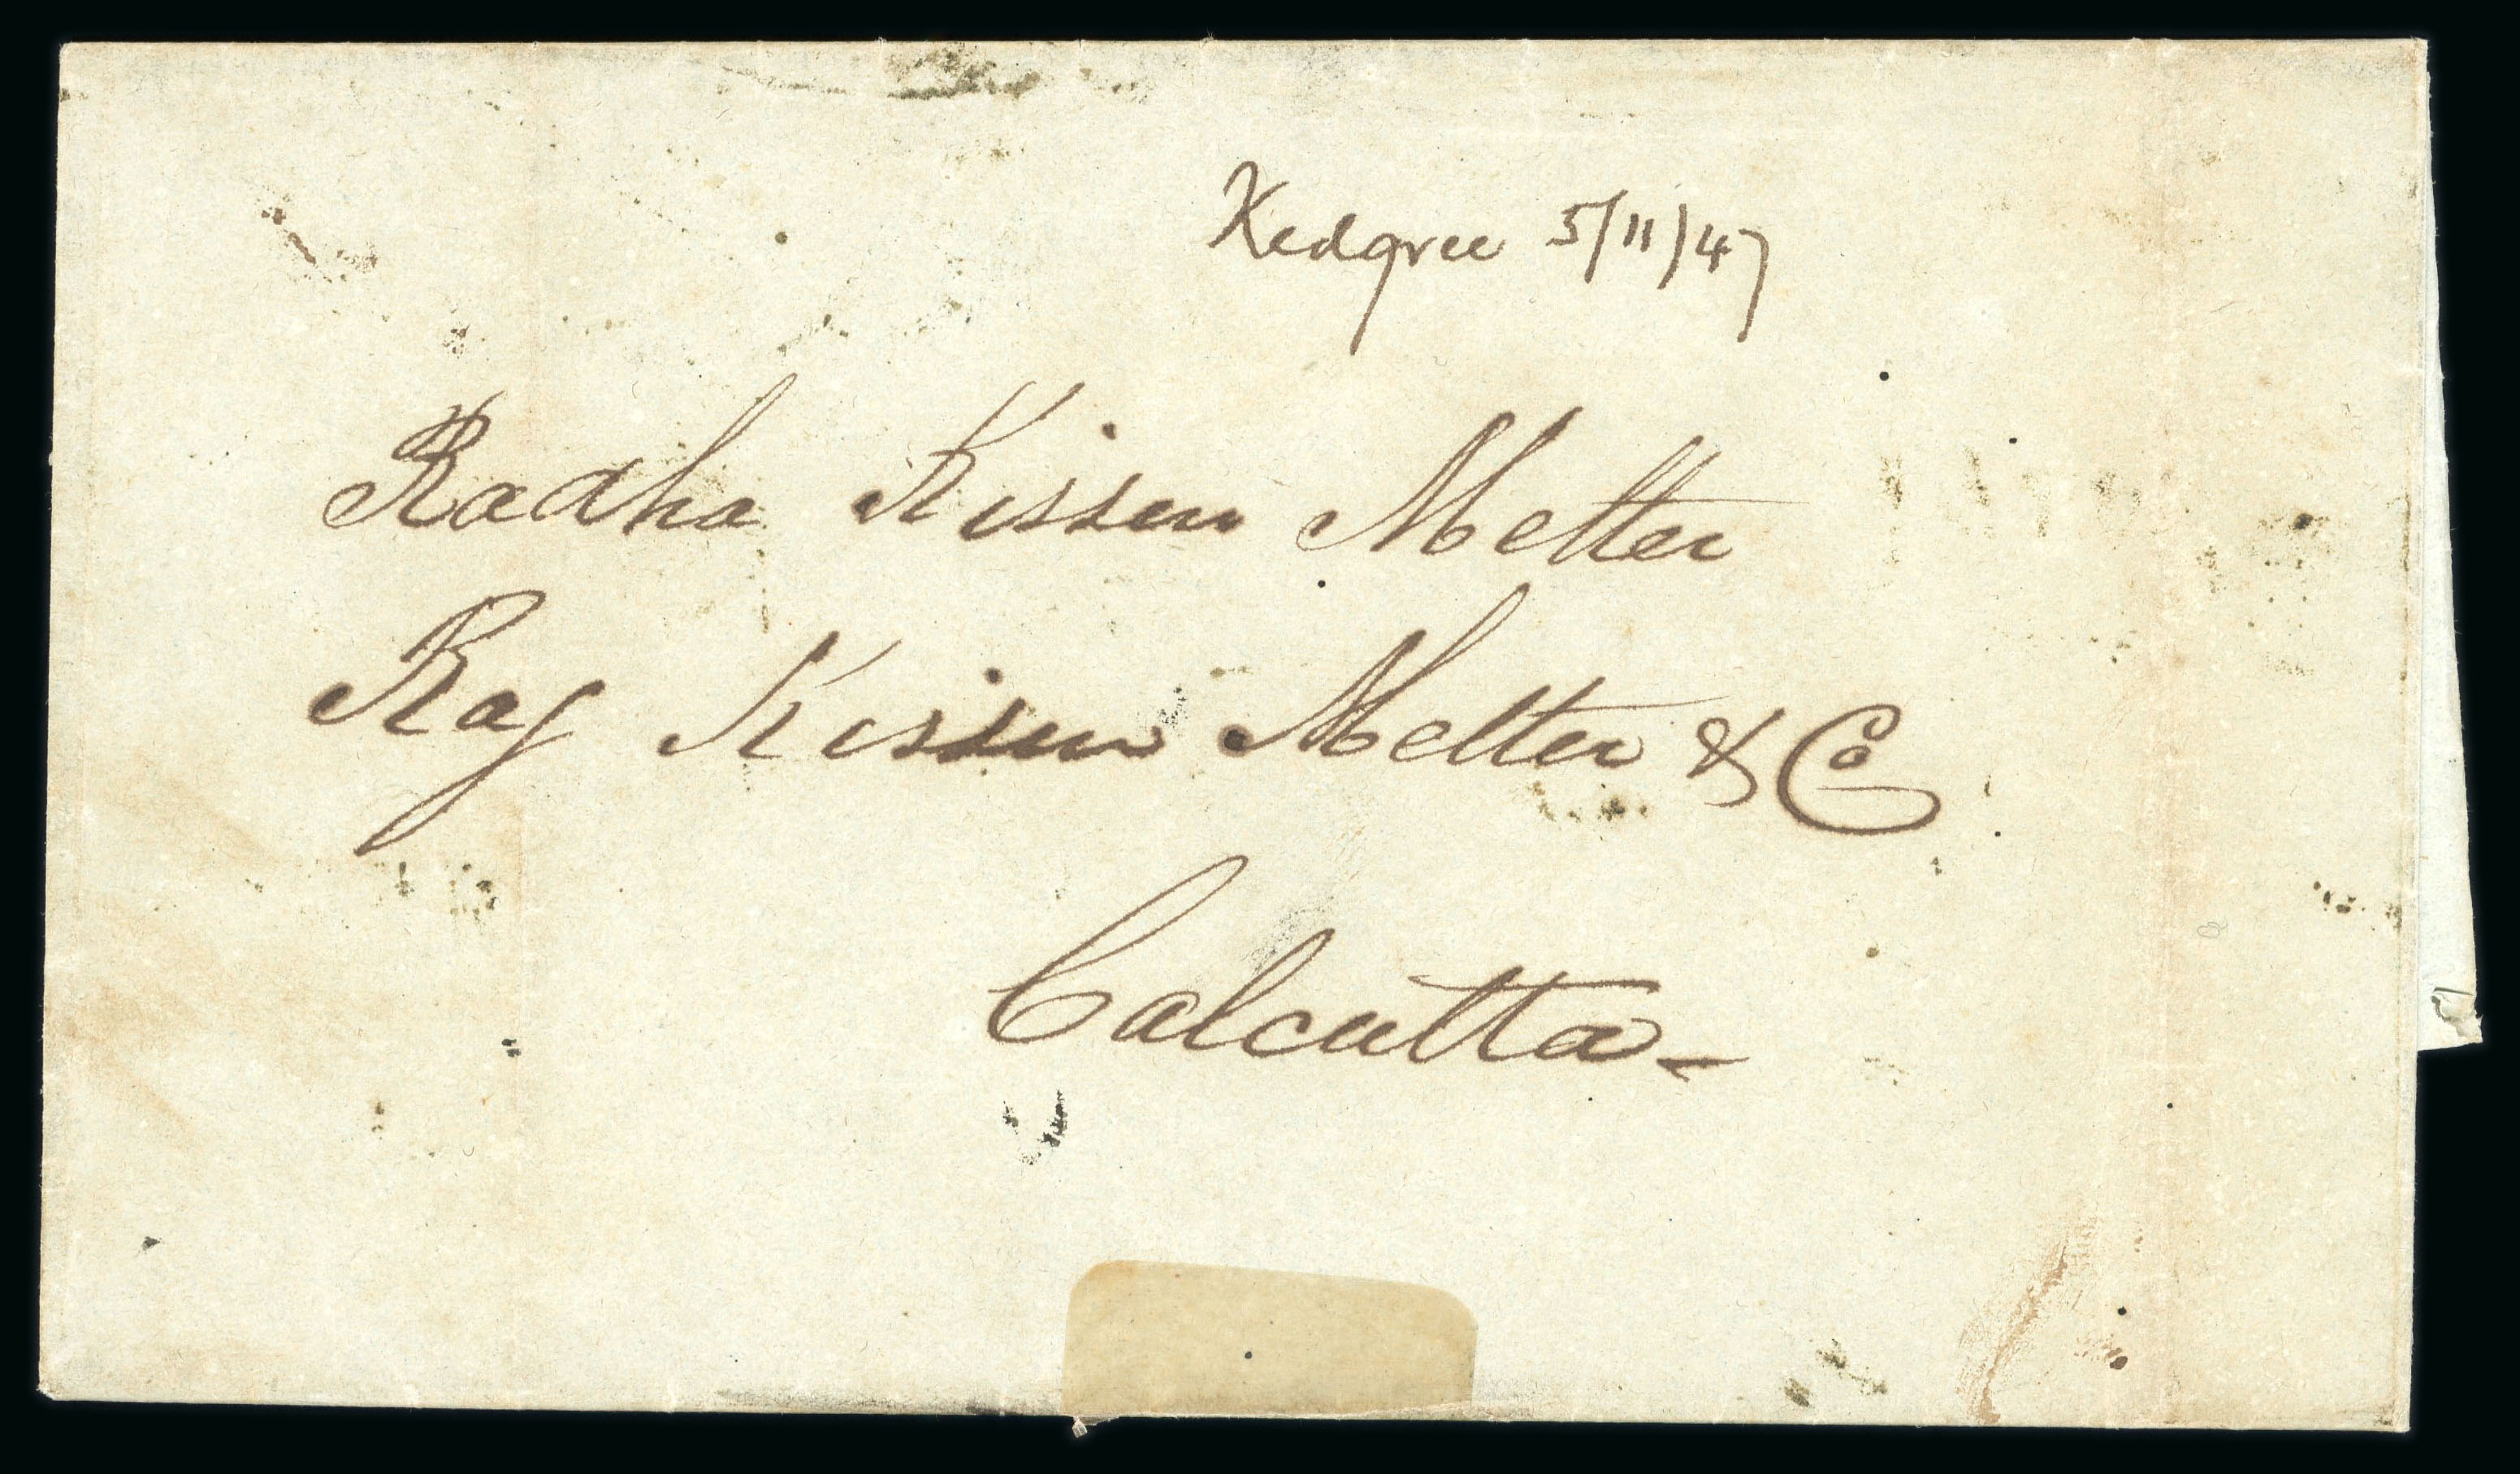 Kedgree 5/11/47
Radha Kissen Metter
Raj Kissen Metter & Co
Calcutta-